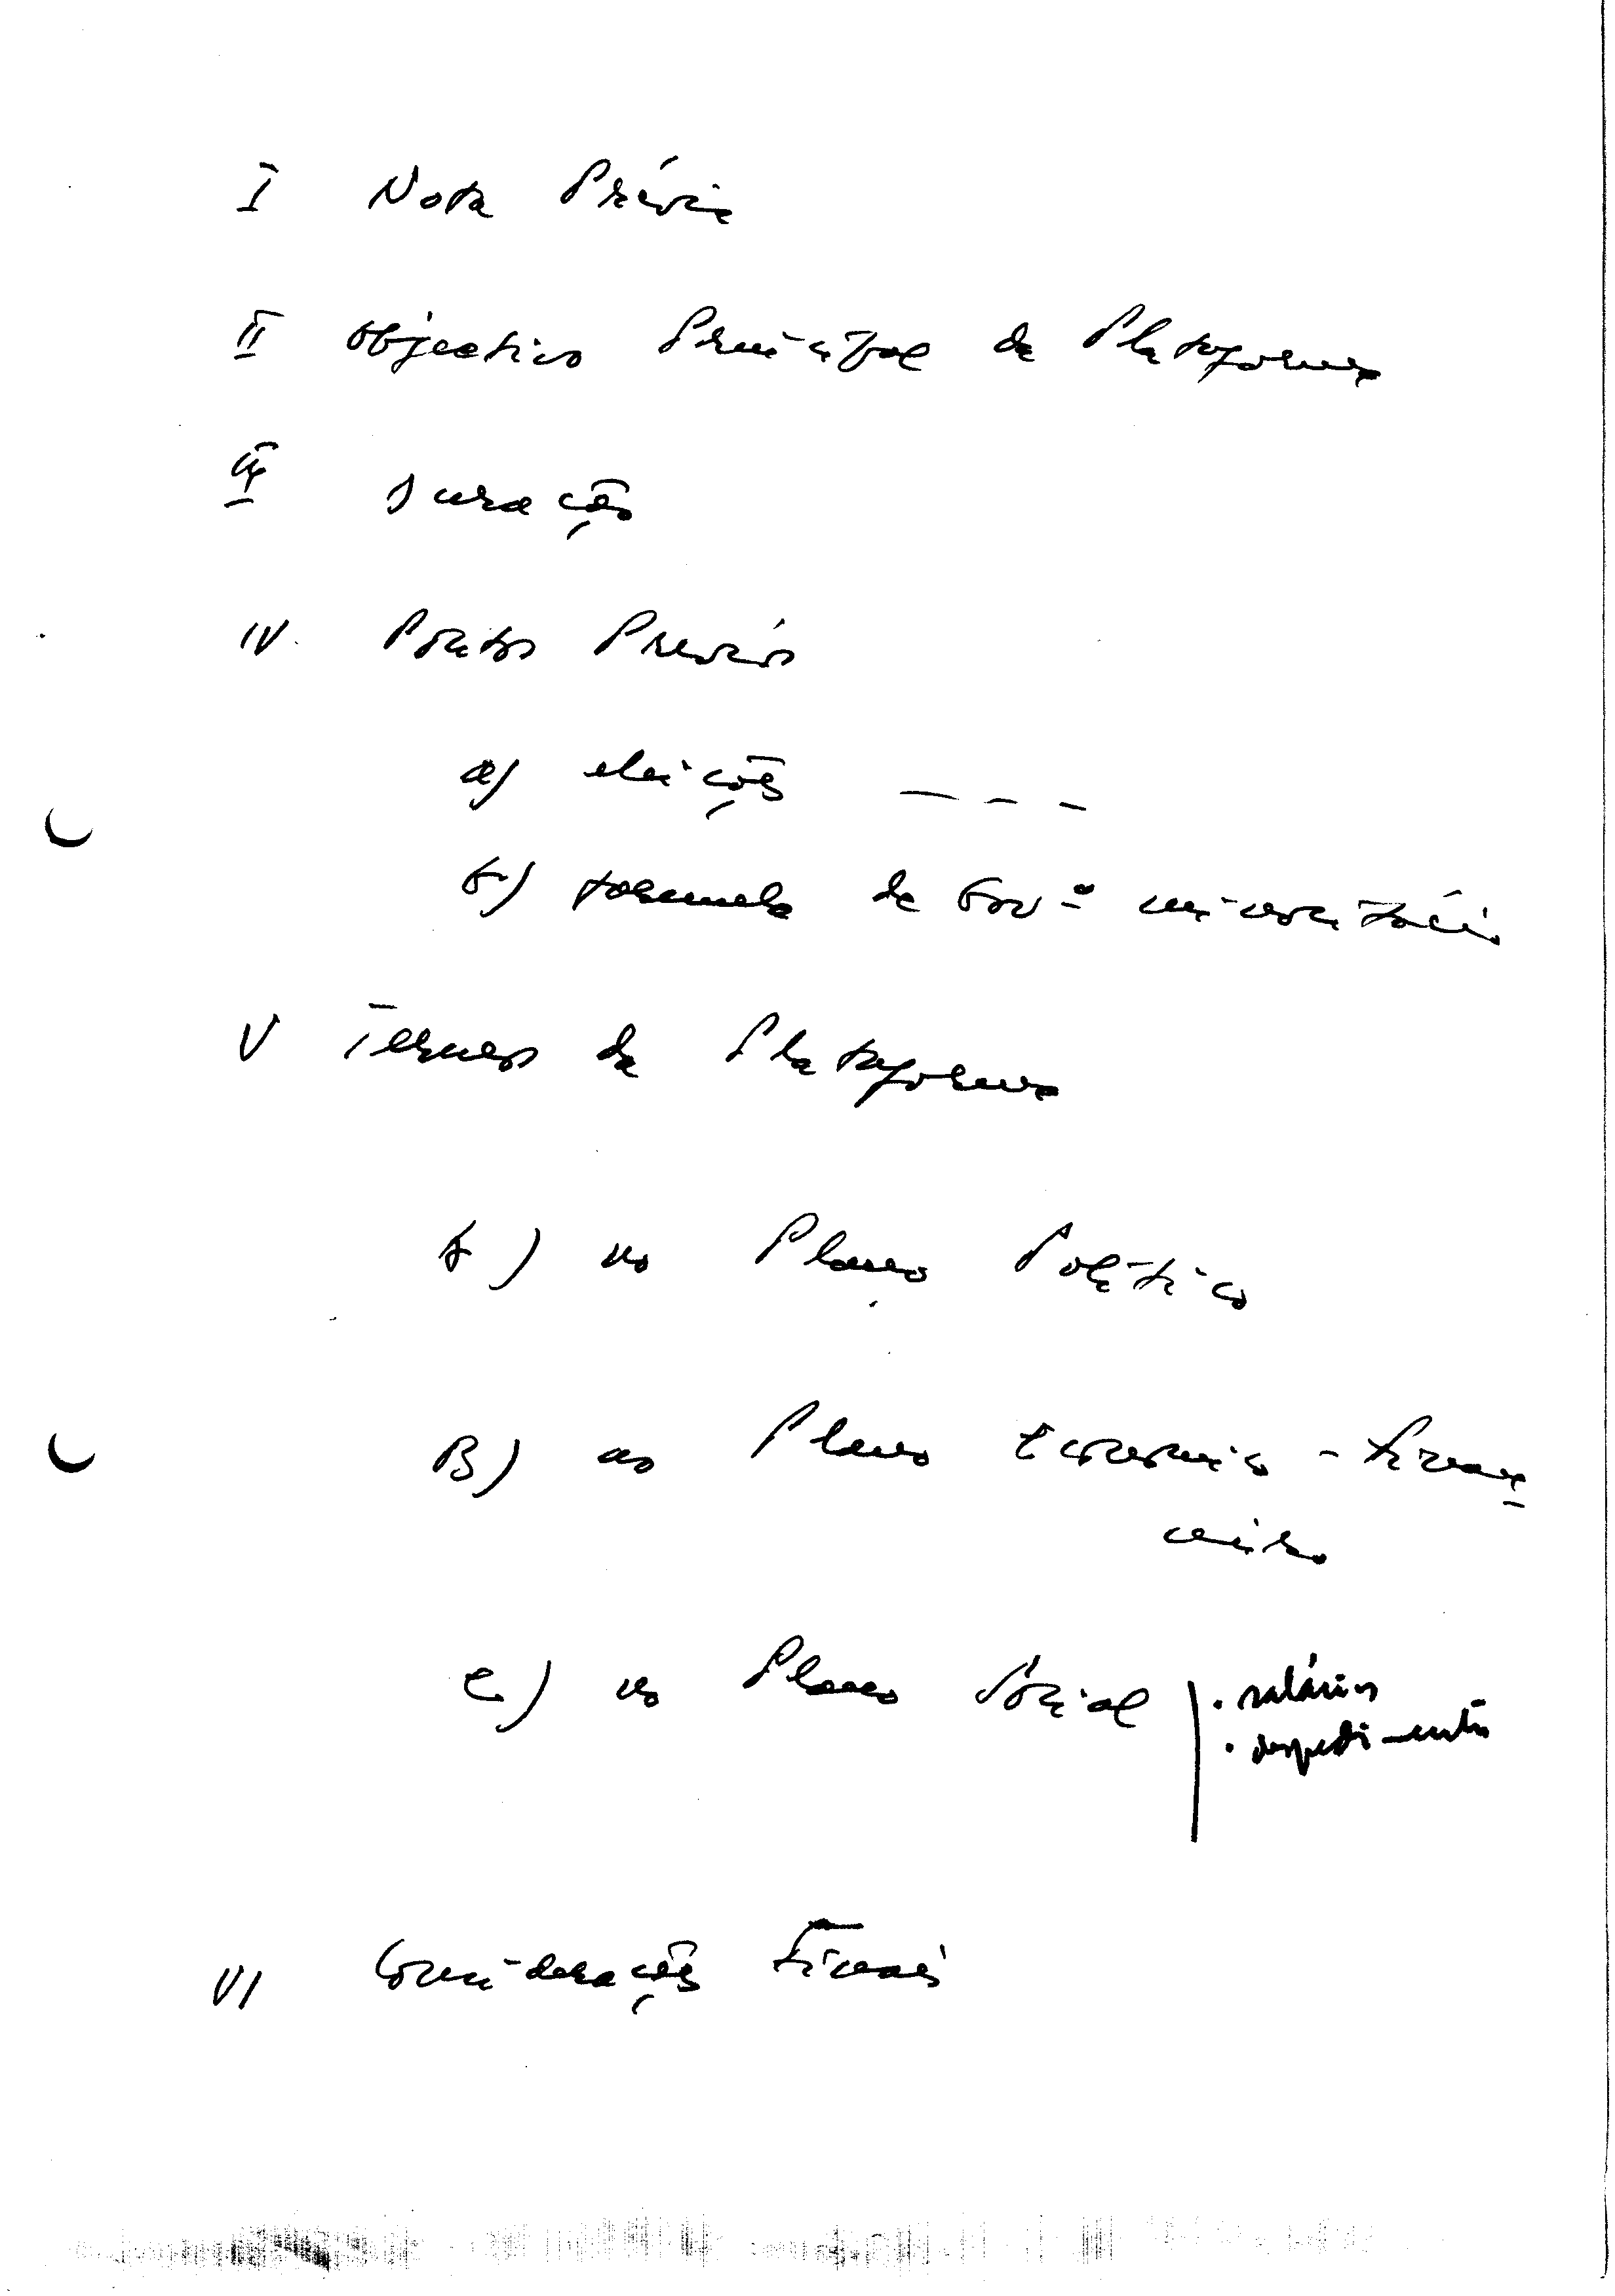 I Nota Prévia
II Objectivo Principal da Plataforma
III Duração
IV. Pontos Prévios
a) eleições _ _ _
b) fórmula de Govº minoritário
V Termos da Plataforma
A) no Plano Político
B) no Plano Económico - Finan-
ceiro
C) no Plano Social | . salários
. despedimentos
VI Considerações Finais